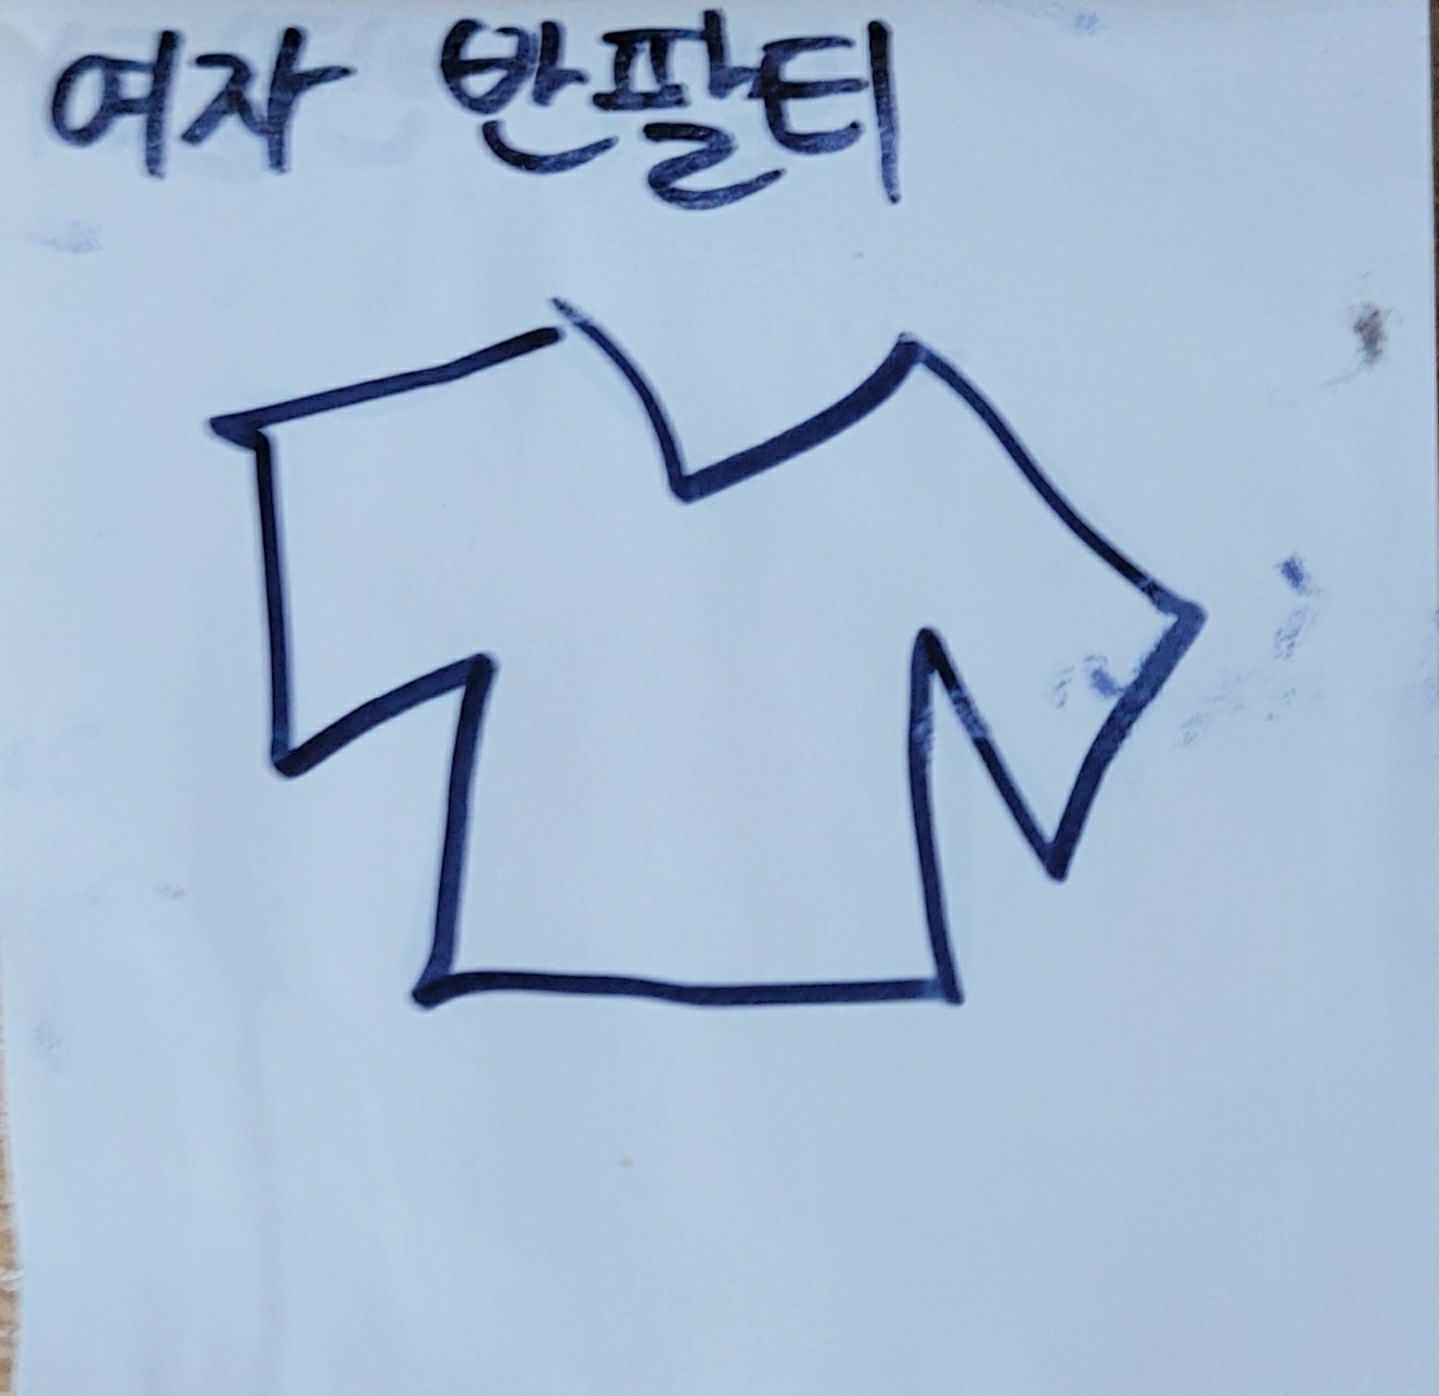 여자 반팔티